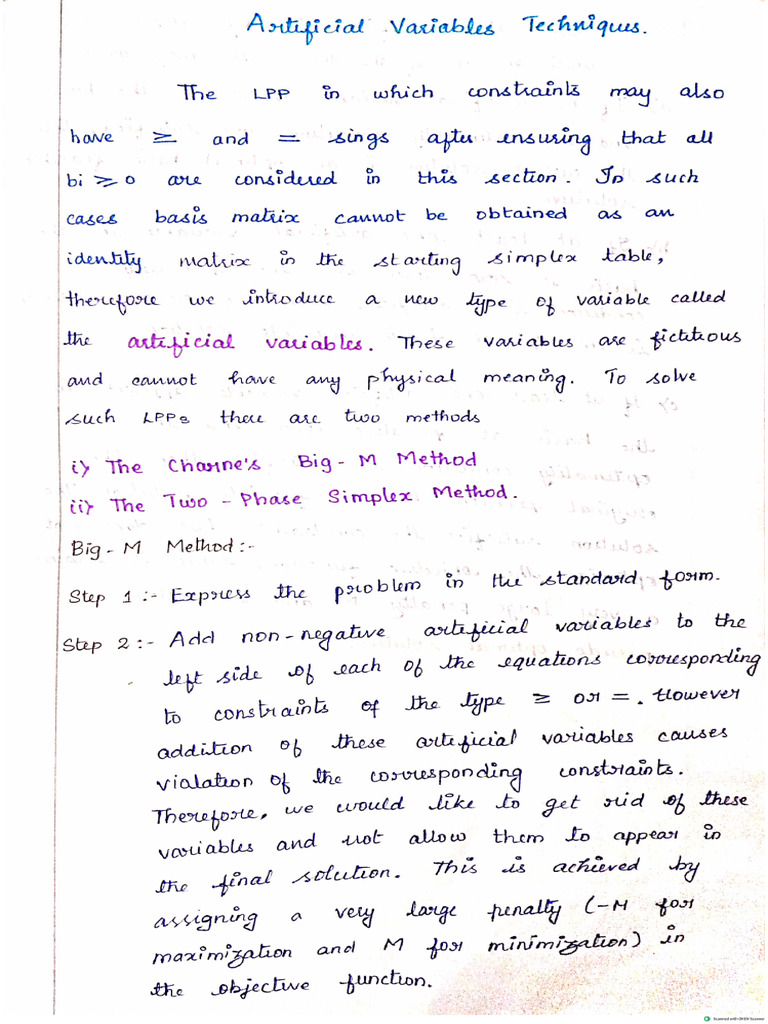 Artificial Variables Techniques.
The LPP in which constraints may also
have ≥ and = sings after ensuring that all
bi ≥ 0 are considered in this section. In such
cases basis matrix cannot be obtained as an
identity matrix in the starting simplex table,
therefore we introduce a new type of variable called
the artificial variables. These variables are fictitious
and cannot have any physical meaning. To solve
such LPPs there are two methods
i) The Charne's Big-M Method
ii) The Two-Phase Simplex Method.
Big-M Method:-
Step 1:- Express the problem in the standard form.
Step 2:- Add non-negative artificial variables to the
left side of each of the equations corresponding
to constraints of the type ≥ or =. However
addition of these artificial variables causes
violation of the corresponding constraints.
Therefore, we would like to get rid of these
variables and not allow them to appear in
the final solution. This is achieved by
assigning a very large penalty (-M for
maximization and M for minimization) in
the objective function.
Scanned with OKEN Scanner